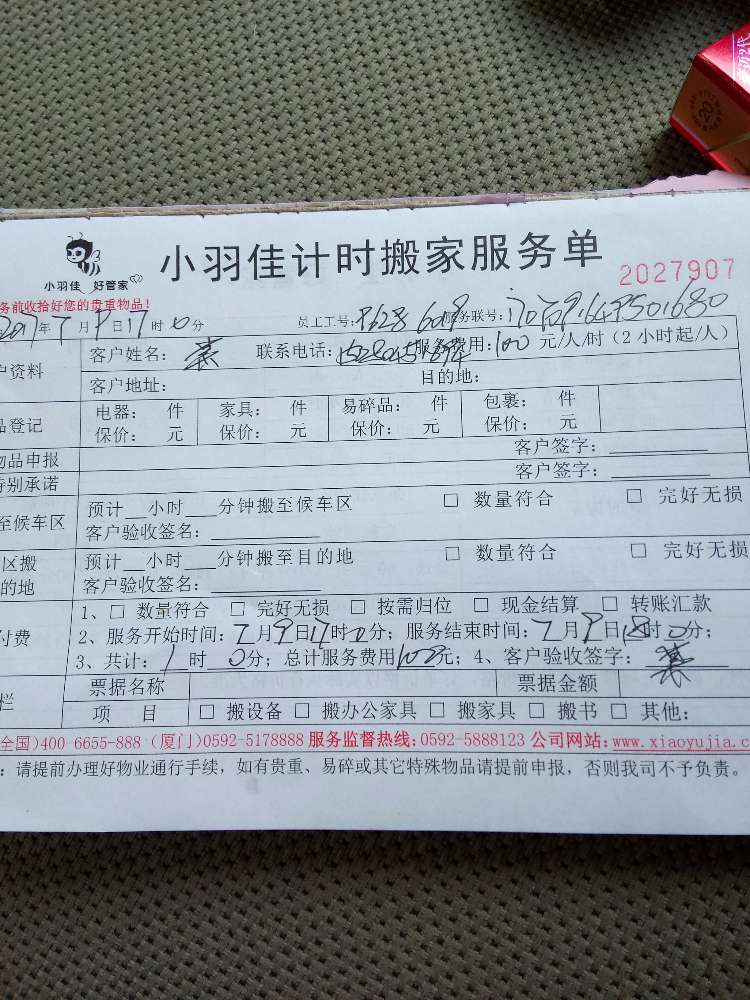 小羽佳 好管家
小羽佳计时搬家服务单
2027907
务前收拾好您的贵重物品！
2017年7月9日17时0分 员工工号： 服务联号：
户资料 客户姓名： 联系电话： 服务费用：100元/人/时（2小时起/人）
客户地址： 目的地：
品登记 电器： 件 家具： 件 易碎品： 件 包裹： 件
保价： 元 保价： 元 保价： 元 保价： 元
物品申报 客户签字：
特别承诺 客户签字：
至候车区 预计__小时__分钟搬至候车区 □ 数量符合 □ 完好无损
客户验收签名：
区搬 预计__小时__分钟搬至目的地 □ 数量符合 □ 完好无损
的地 客户验收签名：
付费 1、□ 数量符合 □ 完好无损 □ 按需归位 □ 现金结算 □ 转账汇款
2、服务开始时间：7月9日17时0分；服务结束时间：7月9日18时0分；
3、共计：1时0分；总计服务费用100元；4、客户验收签字：
栏 票据名称 票据金额
项 目 □ 搬设备 □ 搬办公家具 □ 搬家具 □ 搬书 □ 其他：
全国)400 6655-888（厦门)0592-5178888 服务监督热线：0592-5888123 公司网站：www.xiaoyujia.c
：请提前办理好物业通行手续，如有贵重、易碎或其它特殊物品请提前申报，否则我司不予负责。